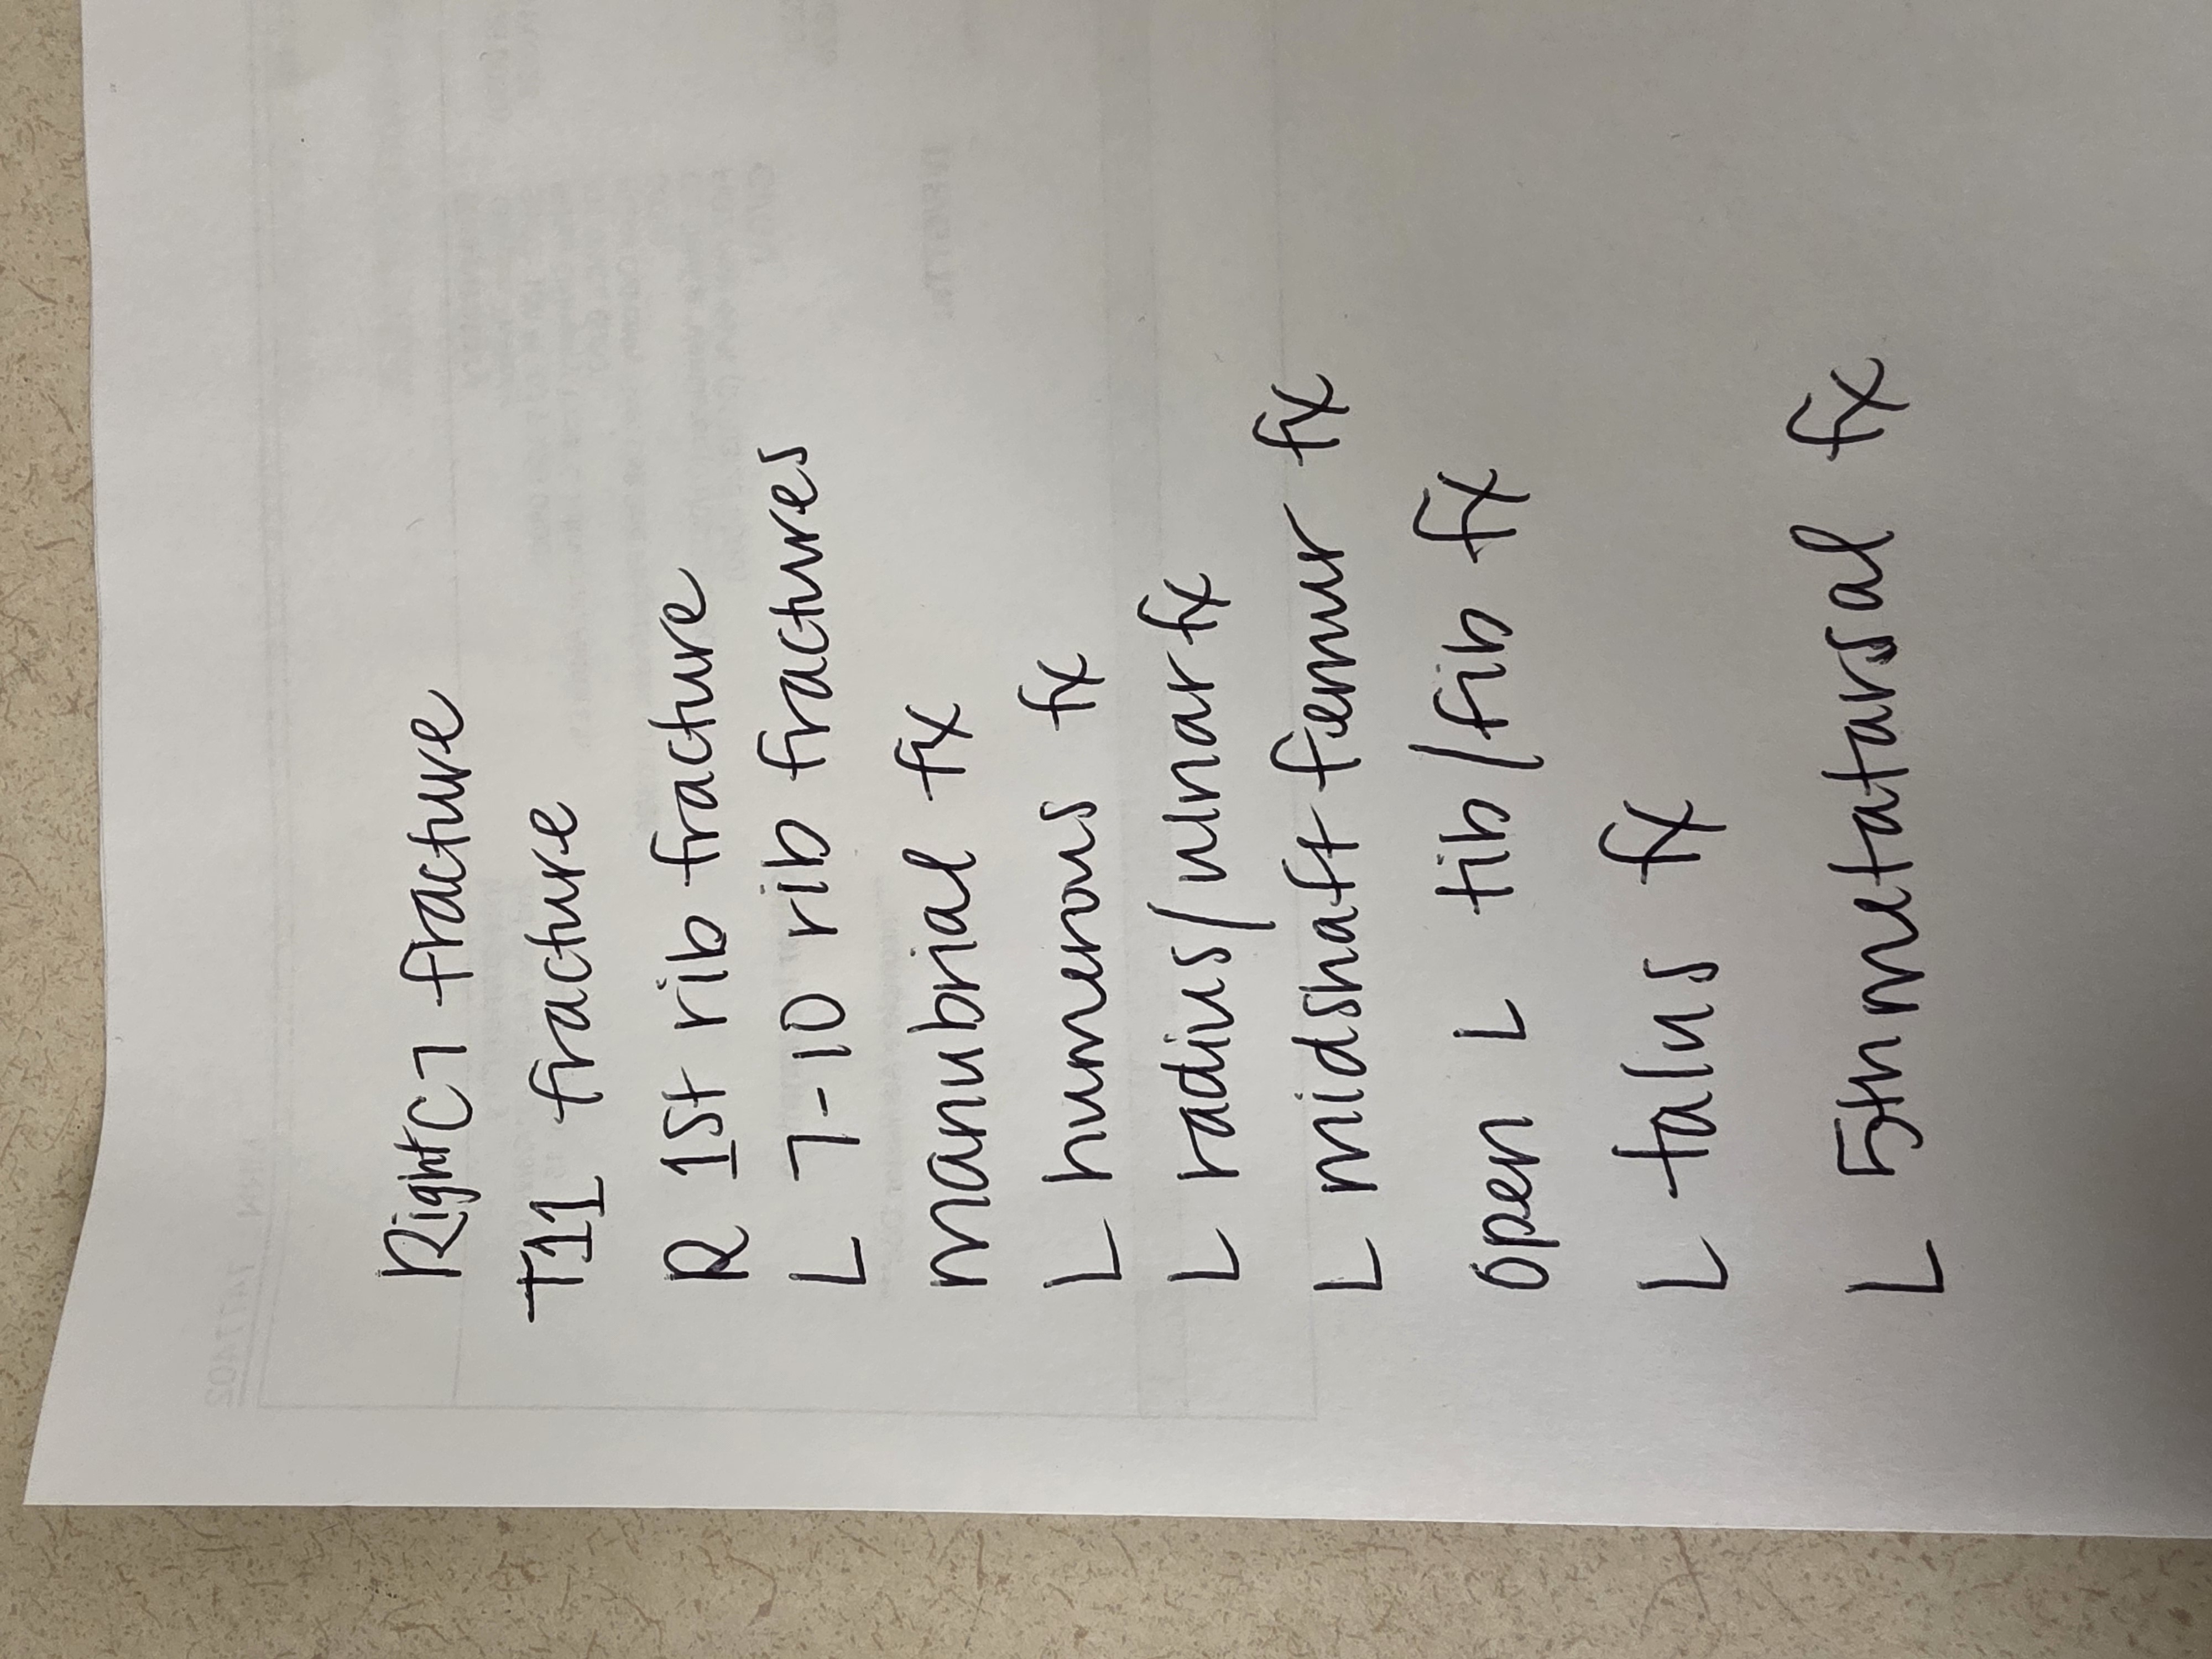 Right C7 fracture
T11 fracture
R 1st rib fracture
L 7-10 rib fractures
manubrial fx
L humerous fx
L radius/ulnar fx
L midshaft femur fx
open L tib/fib fx
L talus fx
L 5th metatarsal fx